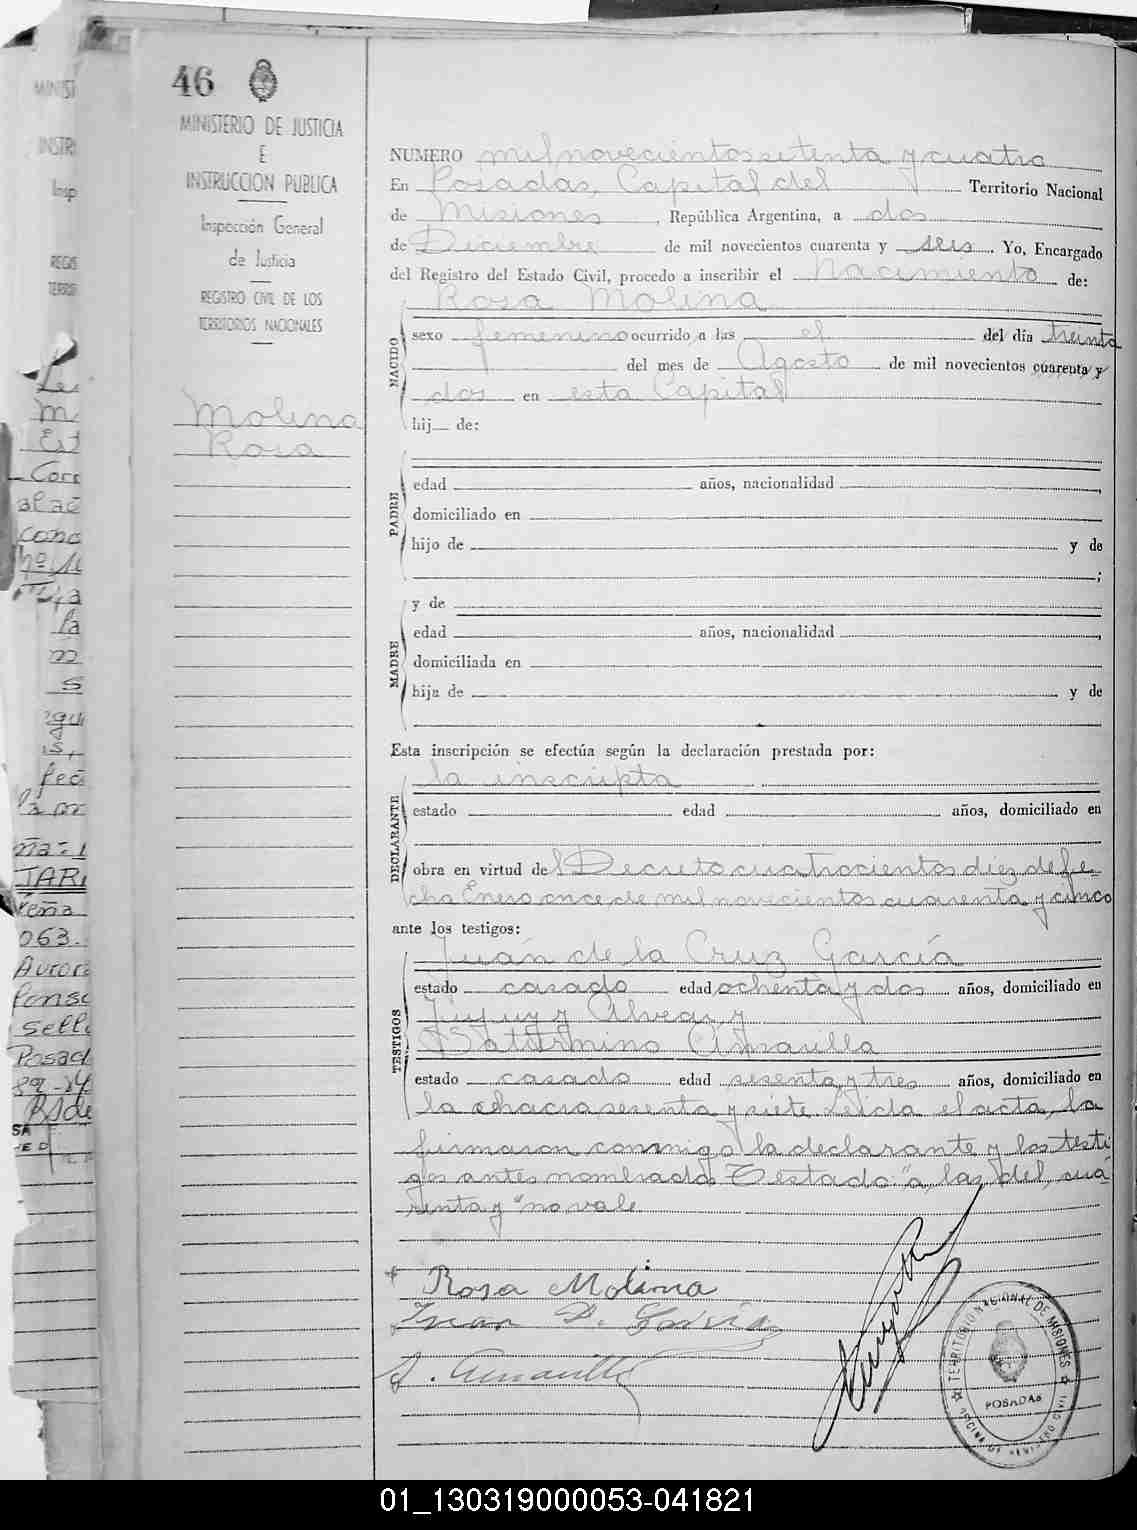 46
MINISTERIO DE JUSTICIA
E
INSTRUCCION PUBLICA
Inspección General
de Justicia
REGISTRO CIVIL DE LOS
TERRITORIOS NACIONALES
Molina
Rosa
NUMERO mil novecientos setenta y cuatro
En Posadas, Capital del Territorio Nacional
de Misiones, República Argentina, a dos
de Diciembre de mil novecientos cuarenta y seis. Yo, Encargado
del Registro del Estado Civil, procedo a inscribir el Nacimiento de:
Rosa Molina
NACIDO
sexo femenino ocurrido a las el del día treinta
del mes de Agosto de mil novecientos cuarenta y
dos en esta Capital
hij de:
PADRE
edad años, nacionalidad ,
domiciliado en
hijo de y de
;
MADRE
y de
edad años, nacionalidad ,
domiciliada en
hija de y de
Esta inscripción se efectúa según la declaración prestada por:
DECLARANTE
la inscripta
estado edad años, domiciliado en
obra en virtud del Decreto cuatrocientos diez de fe
cha Enero once de mil novecientos cuarenta y cinco
ante los testigos:
TESTIGOS
Juan de la Cruz García
estado casado edad ochenta y dos años, domiciliado en
Jujuy y Alvear y
Saturnino Amarilla
estado casado edad sesenta y tres años, domiciliado en
la chacra sesenta y siete. Leida el acta, la
firmaron conmigo la declarante y los testi
gos antes nombrados. Testado: "a, las, del, cua
renta y" no vale
Rosa Molina
Juan D. García
S. Amarilla
TERRITORIO NACIONAL DE MISIONES
POSADAS
OFICINA DE REGISTRO CIVIL
Le
M
Est
Corr
al ac
cono
la
m
s
fec
JARA
063.
Aurora
Sell
Posad
01_130319000053-041821